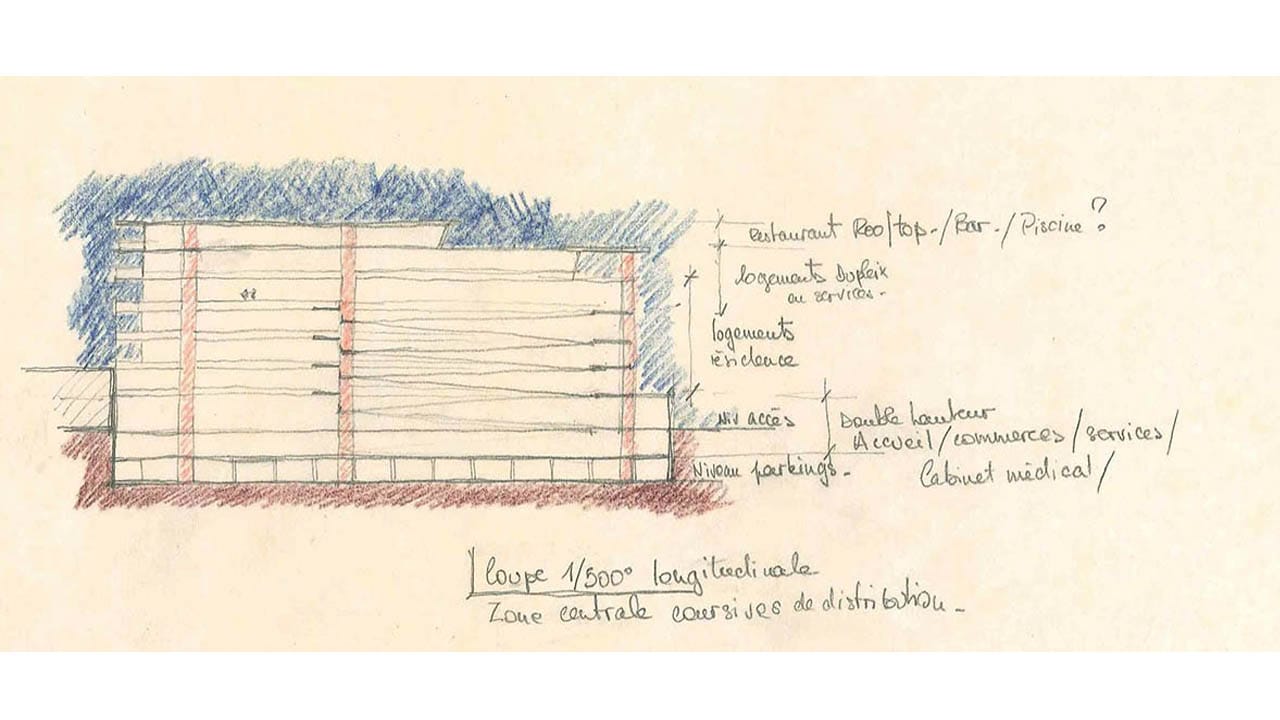 Restaurant Rooftop./Bar./Piscine?
logements Dupleix
ou services.
logements
résidence
Niv accès
Double hauteur
Accueil/commerces/services/
Niveau parkings.
Cabinet médical/
Coupe 1/500° longitudinale
Zone centrale coursives de distribution.